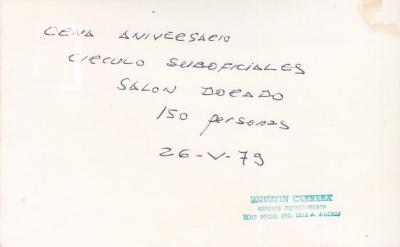 CENA ANIVERSARIO
CIRCULO SUBOFICIALES
SALON DORADO
150 personas
26-V-79
AGUSTIN CABRERA
GERENTE DEPARTAMENTO
SOCIAL ING. LUIS A.